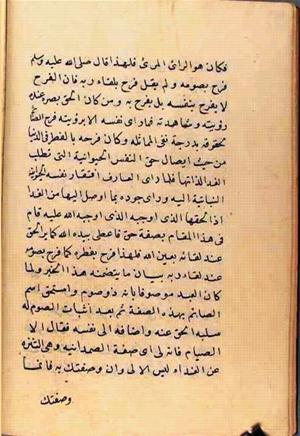 فكان هو الرائ المرئ فلهذا قال صلى الله عليه وسلم
فرح بصومه ولم يقل فرح بلقاء ربه فان الفرح
لا يفرح بنفسه بل يفرح به ومن كان الحق بصره عند
رؤيته ومشاهدته فما راى نفسه الا برؤيته ففرح الصائم
لحوقه بدرجة نفي المماثلة وكان فرحه بالفطر في الدنيا
من حيث ايصال حق النفس الحيوانية التى تطلب
الغذا لذاتها فلما راى العارف افتقار نفسه الحيوانية
النباتية اليه وراى جوده بما اوصل اليها من الغدا
اداء لحقها الذى اوجبه الله عليه قام
فى هذا المقام بصفة حق فاعطى بيده الله كما يرى الحق
عند لقائه بعين الله فلهذا فرح بفطره كما فرح بصومه
عند لقاء ربه بيان ما يتضمنه هذا الخبر ولما
كان العبد موصوفا بانه ذو صوم واستحق اسم
الصائم بهذه الصفة ثم بعد اثبات الصوم له
سلبه الحق عنه واضافه الى نفسه فقال الا
الصيام فانه لى اى صفة الصمدانيه وهى التنزه
عن الغذاء ليس الا لى وان وصفتك به فانما
وصفتك